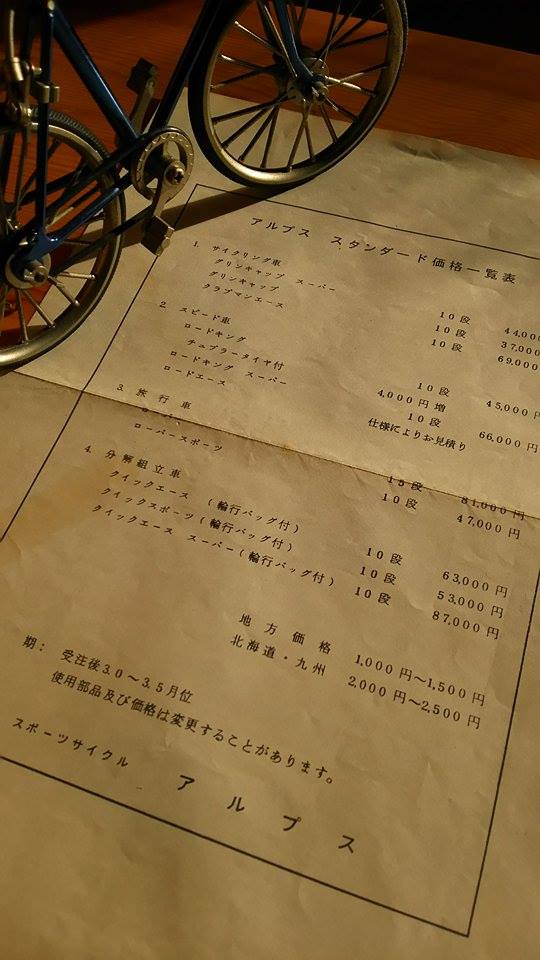 アルプス スタンダード価格一覧表
1. サイクリング車
グリンキャップ スーパー 10段 44,00
グリンキャップ 10段 37,000
クラブマンエース 10段 69,000
2. スピード車
ロードキング 10段 45,000
チュブラータイヤ付 4,000円増
ロードキング スーパー 10段 66,000円
ロードエース 仕様によりお見積り
3. 旅行車
15段 81,000円
ローバースポーツ 10段 47,000円
4. 分解組立車
クイックエース (輪行バッグ付) 10段 63,000円
クイックスポーツ(輪行バッグ付) 10段 53,000円
クイックエース スーパー(輪行バッグ付) 10段 87,000円
地方価格 1,000円~1,500円
北海道・九州 2,000円~2,500円
期: 受注後3.0~3.5月位
使用部品及び価格は変更することがあります。
スポーツサイクル アルプス